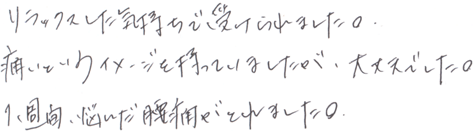 リラックスした気持ちで受けられました。
痛いというイメージを持っていましたが、大丈夫でした。
1週間、悩んだ腰痛がとれました。